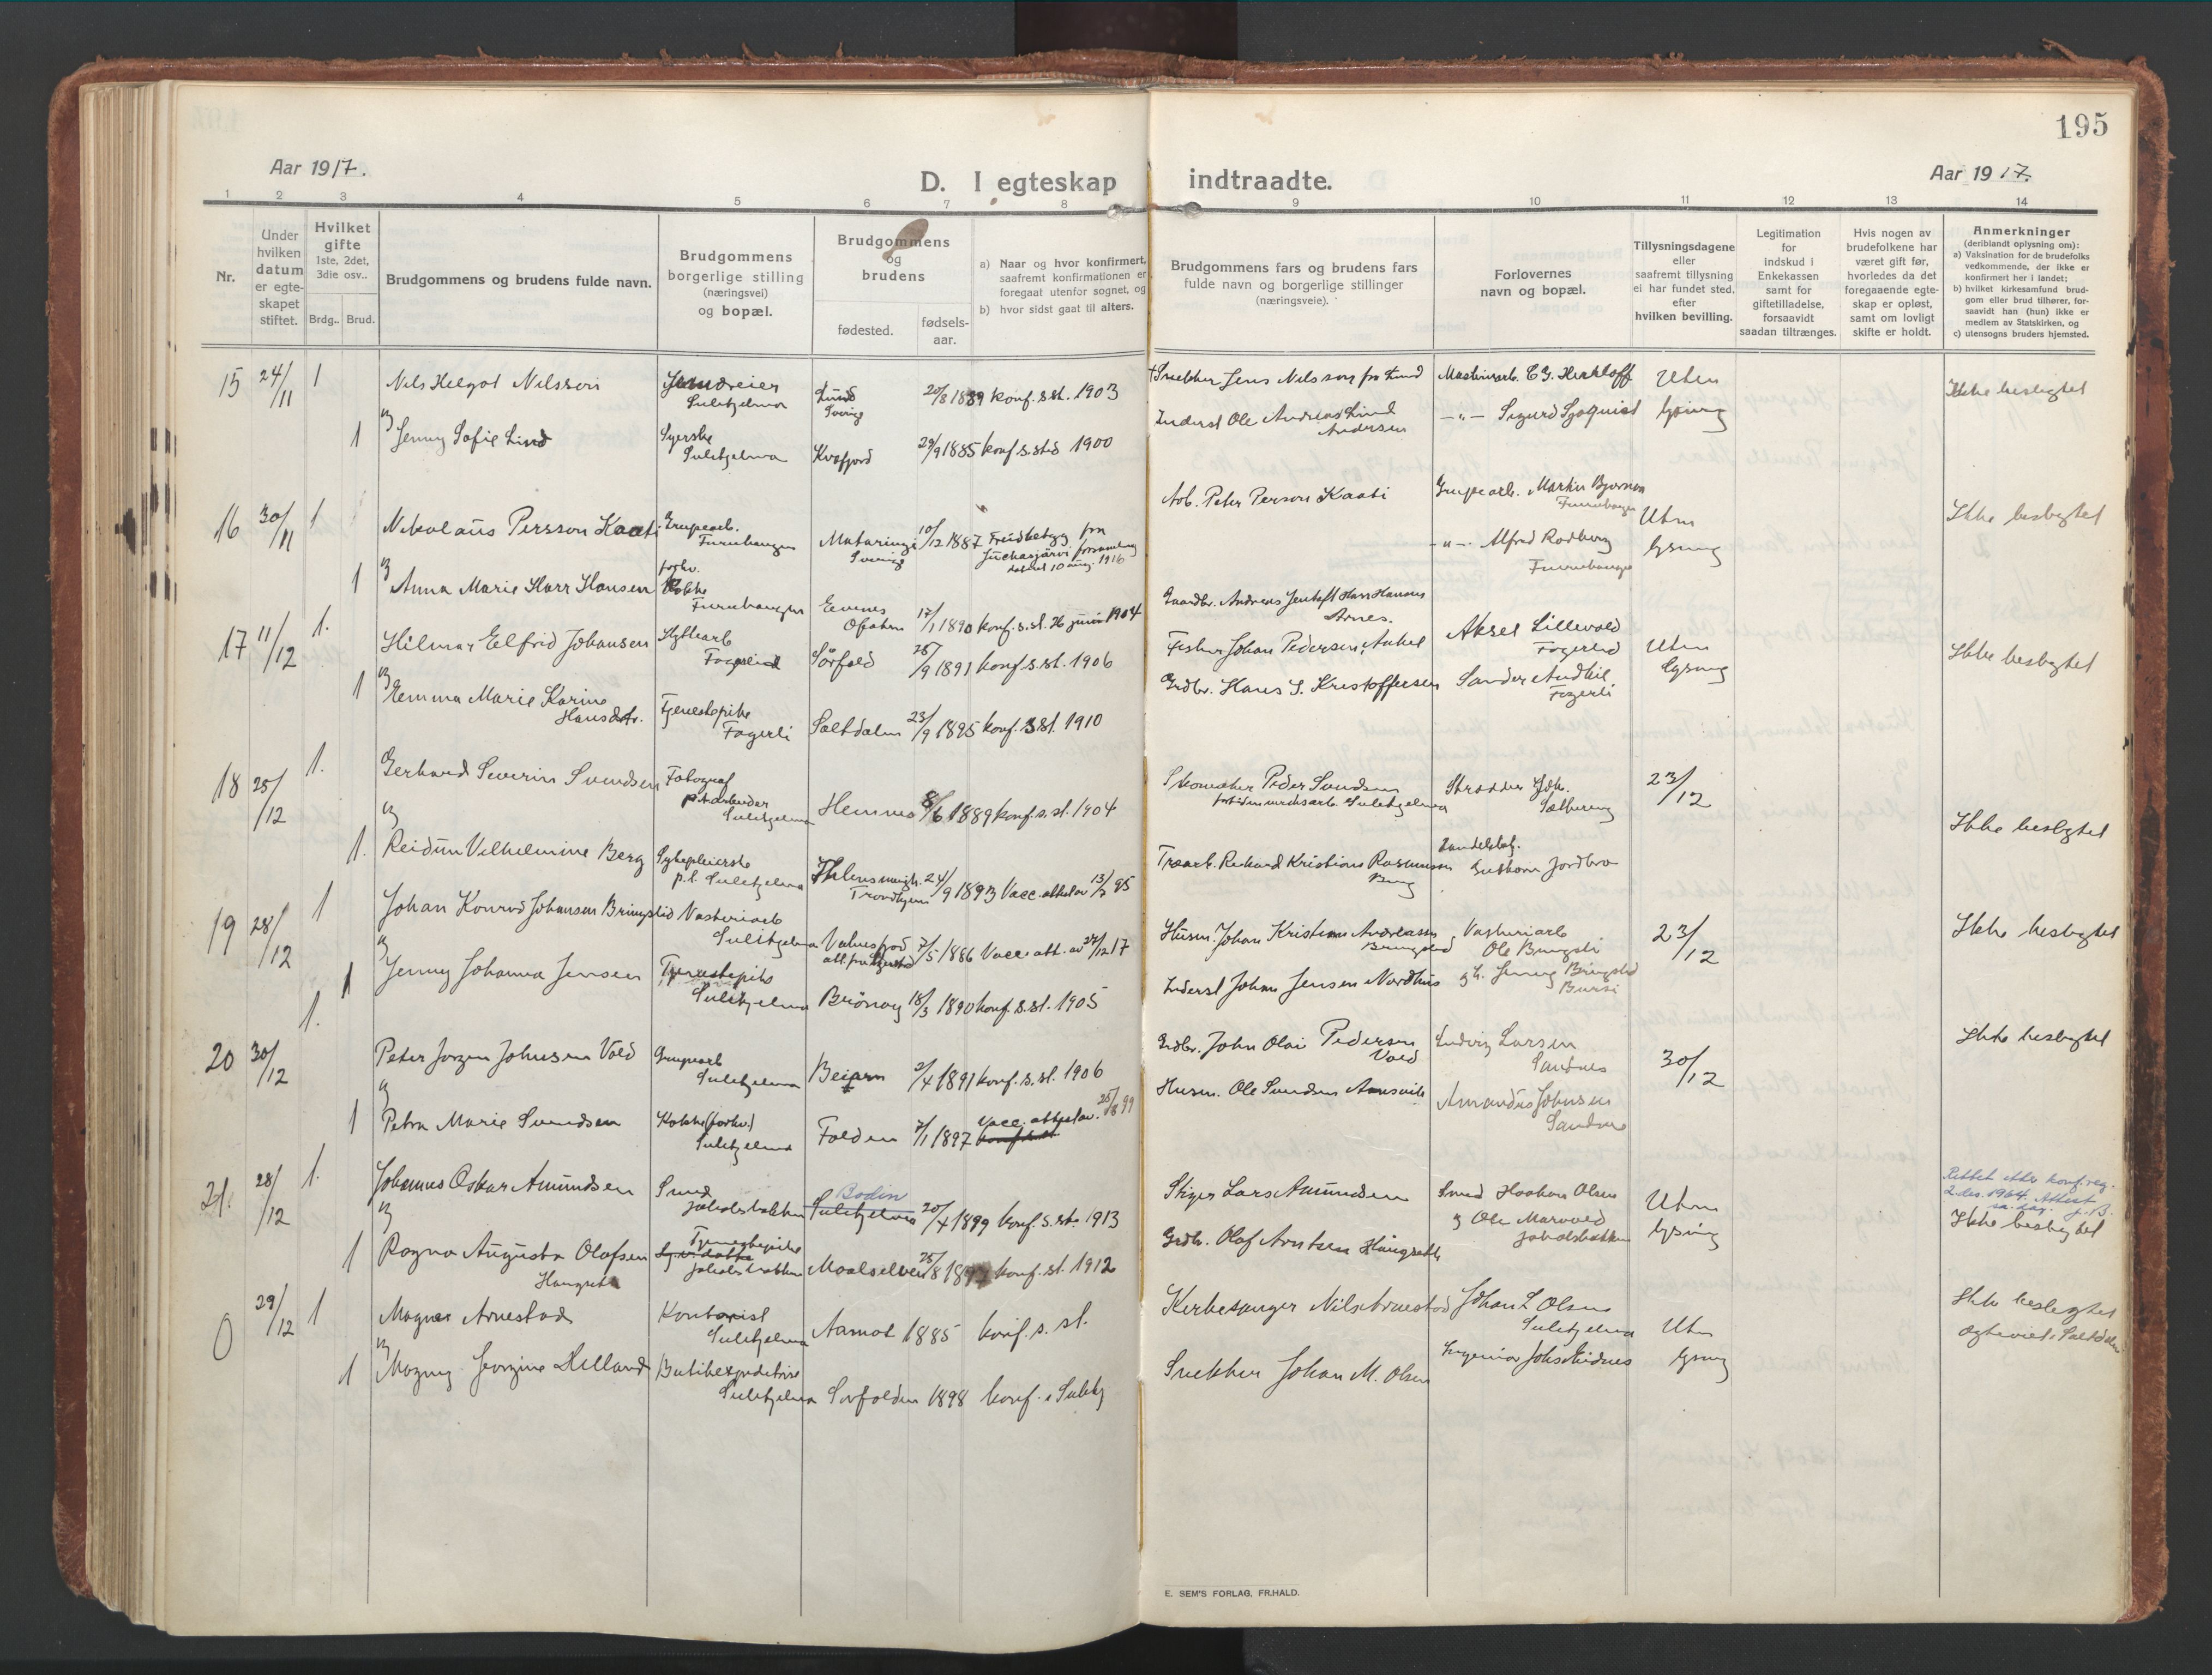 195
Aar 1917.
D. I egteskap indtraadte.
Aar 1917.
1 2 3 4 5 6 7 8 9 10 11 12 13 14
Nr.
Under hvilken datum er egte-skapet stiftet.
Hvilket gifte 1ste, 2det, 3die osv..
Brdg.. Brud.
Brudgommens og brudens fulde navn.
Brudgommens borgerlige stilling (næringsvei) og bopæl.
Brudgommens og brudens
fødested.
fødsels-aar.
a) Naar og hvor konfirmert, saafremt konfirmationen er foregaat utenfor sognet, og
b) hvor sidst gaat til alters.
Brudgommens fars og brudens fars fulde navn og borgerlige stillinger (næringsveie).
Forlovernes navn og bopæl.
Tillysningsdagene eller saafremt tillysning ei har fundet sted, efter hvilken bevilling.
Legitimation for indskud i Enkekassen samt for giftetilladelse, forsaavidt saadan tiltrænges.
Hvis nogen av brudefolkene har været gift før, hvorledes da det foregaaende egte-skap er opløst, samt om lovligt skifte er holdt.
Anmerkninger (deriblandt oplysning om):
a) Vaksination for de brudefolks vedkommende, der ikke er konfirmert her i landet;
b) hvilket kirkesamfund brud-gom eller brud tilhører, for-saavidt han (hun) ikke er medlem av Statskirken, og
c) utensogns bruders hjemsted.
15 24/11 1 Nils Helgot Nilsson Sulitjelma Lund Sverige 20/8 1889 konf. s. st. 1903 Snekker Jens Nilsson fra Lund Uten Ikke beslegtet
og
1 Jenny Sofie Lind Syerske Sulitjelma Kvæfjord 29/9 1885 konf. s. sted 1900 Inderst Ole Andreas Lind Andersen -"- Sigurd Sjøquist lysning
16 30/11 1 Nikolaus Persson Kaati Grupearb. Furuhaugen Sverige 10/12 1887 Jukkasjärvi 10 aug. 1916 Arb. Peter Person Kaati Grupearb. Martin Bjørnson Furuhaugen Uten Ikke beslegtet
-"- Alfred Rodberg Furuhaugen lysning
og
1 Anna Marie Harr Hansen forhv. Kokke Furuhaugen Evenes Ofoten 17/1 1890 konf. s. st. 26 juni 1904 Gaardbr. Andreas Jentoft Harr Hansen
17 11/12 1. Hilmar Eelfrid Johansen Hyttearb Fagerli Sørfold 25/9 1891 konf. s. st. 1906 Fisker Johan Pedersen Aksel Lillevold Fagerli Uten lysning Ikke beslegtet
og
1 Emma Marie Karine Hansdtr. Tjenestepike Fagerli Saltdalen 23/9 1895 konf. s. st. 1910 Grdbr. Hans S. Kristoffersen Sander Fagerli
18 25/12 1. Gerhard Severin Svendsen Fotograf Sulitjelma Hemnes 8/6 1889 konf. s. st. 1904 Skomaker Peder Svendsen Sulitjelma Skrædder 23/12 Ikke beslegtet
og
1. Reidun Vilhelmine Berg Sykepleierske p.t. Sulitjelma Trondhjem 24/9 1893 Vacc. attest av 13/7 95 Træarb. Rikard Kristian Rasmussen Berg Handelsbetj. Guttorm Jordbro
19 28/12 1 Johan Konrad Johansen Bringslid Vaskeriarb Sulitjelma Valnesfjord 7/5 1886 Vacc. att. av 27/12 17 Husm. Johan Kristian Andreassen Bringslid Vaskeriarb Ole Bringsli 23/12 Ikke beslegtet
og
1 Jenny Johanna Jensen Tjenestepike Sulitjelma Brönöy 18/3 1890 konf. s. st. 1905 Inderst Johan Jensen Nordhus Bringslid Bursi
20 30/12 1. Peter Jørgen Johnsen Vold Grupearb Sulitjelma Beiarn 2/4 1891 konf. s. st. 1906 Grdbr. John Olai Pedersen Vold Ludvig Larsen Sandnes 30/12 Ikke beslegtet
og
1 Petra Marie Svendsen Kokke (forhv.) Sulitjelma Folden 7/1 1897 Vacc. attest av. 25/8 99 Husm. Ole Svendsen Amandus Johnsen Sandnes
21. 28/12 1. Johannes Oskar Amundsen Smed Jakobsbakken Bodin Sulitjelma 20/4 1899 konf. s. st. 1913 Stiger Lars Amundsen Smed Haakon Olsen Uten
Rettet etter konf.reg. 2 des. 1964. Attest sa. dag. J.B.
Ikke beslegtet
og
1 Ragna Augusta Olafsen Haugseth Tjenestepike Jakobsbakken Maalselven 25/8 konf. st. 1912 Grdbr. Olaf Arntsen Haugseth og Ole Marvold Jakobsbakken lysning
0 29/12 1 Magnus Arnestad Kontorist Sulitjelma Aamot 1885 konf. s. st. Kirkesanger Nils Arnestad Johan L Olsen Sulitjelma Uten Ikke beslegtet
og
1 Magny Jeorgine Helland Butikekspeditrice Sulitjelma Sørfolden 1898 konf. i Sulitj Snekker Johan M. Olsen Ingeniør lysning Egteviet i Saltdalen
E. SEM'S FORLAG, FR.HALD.